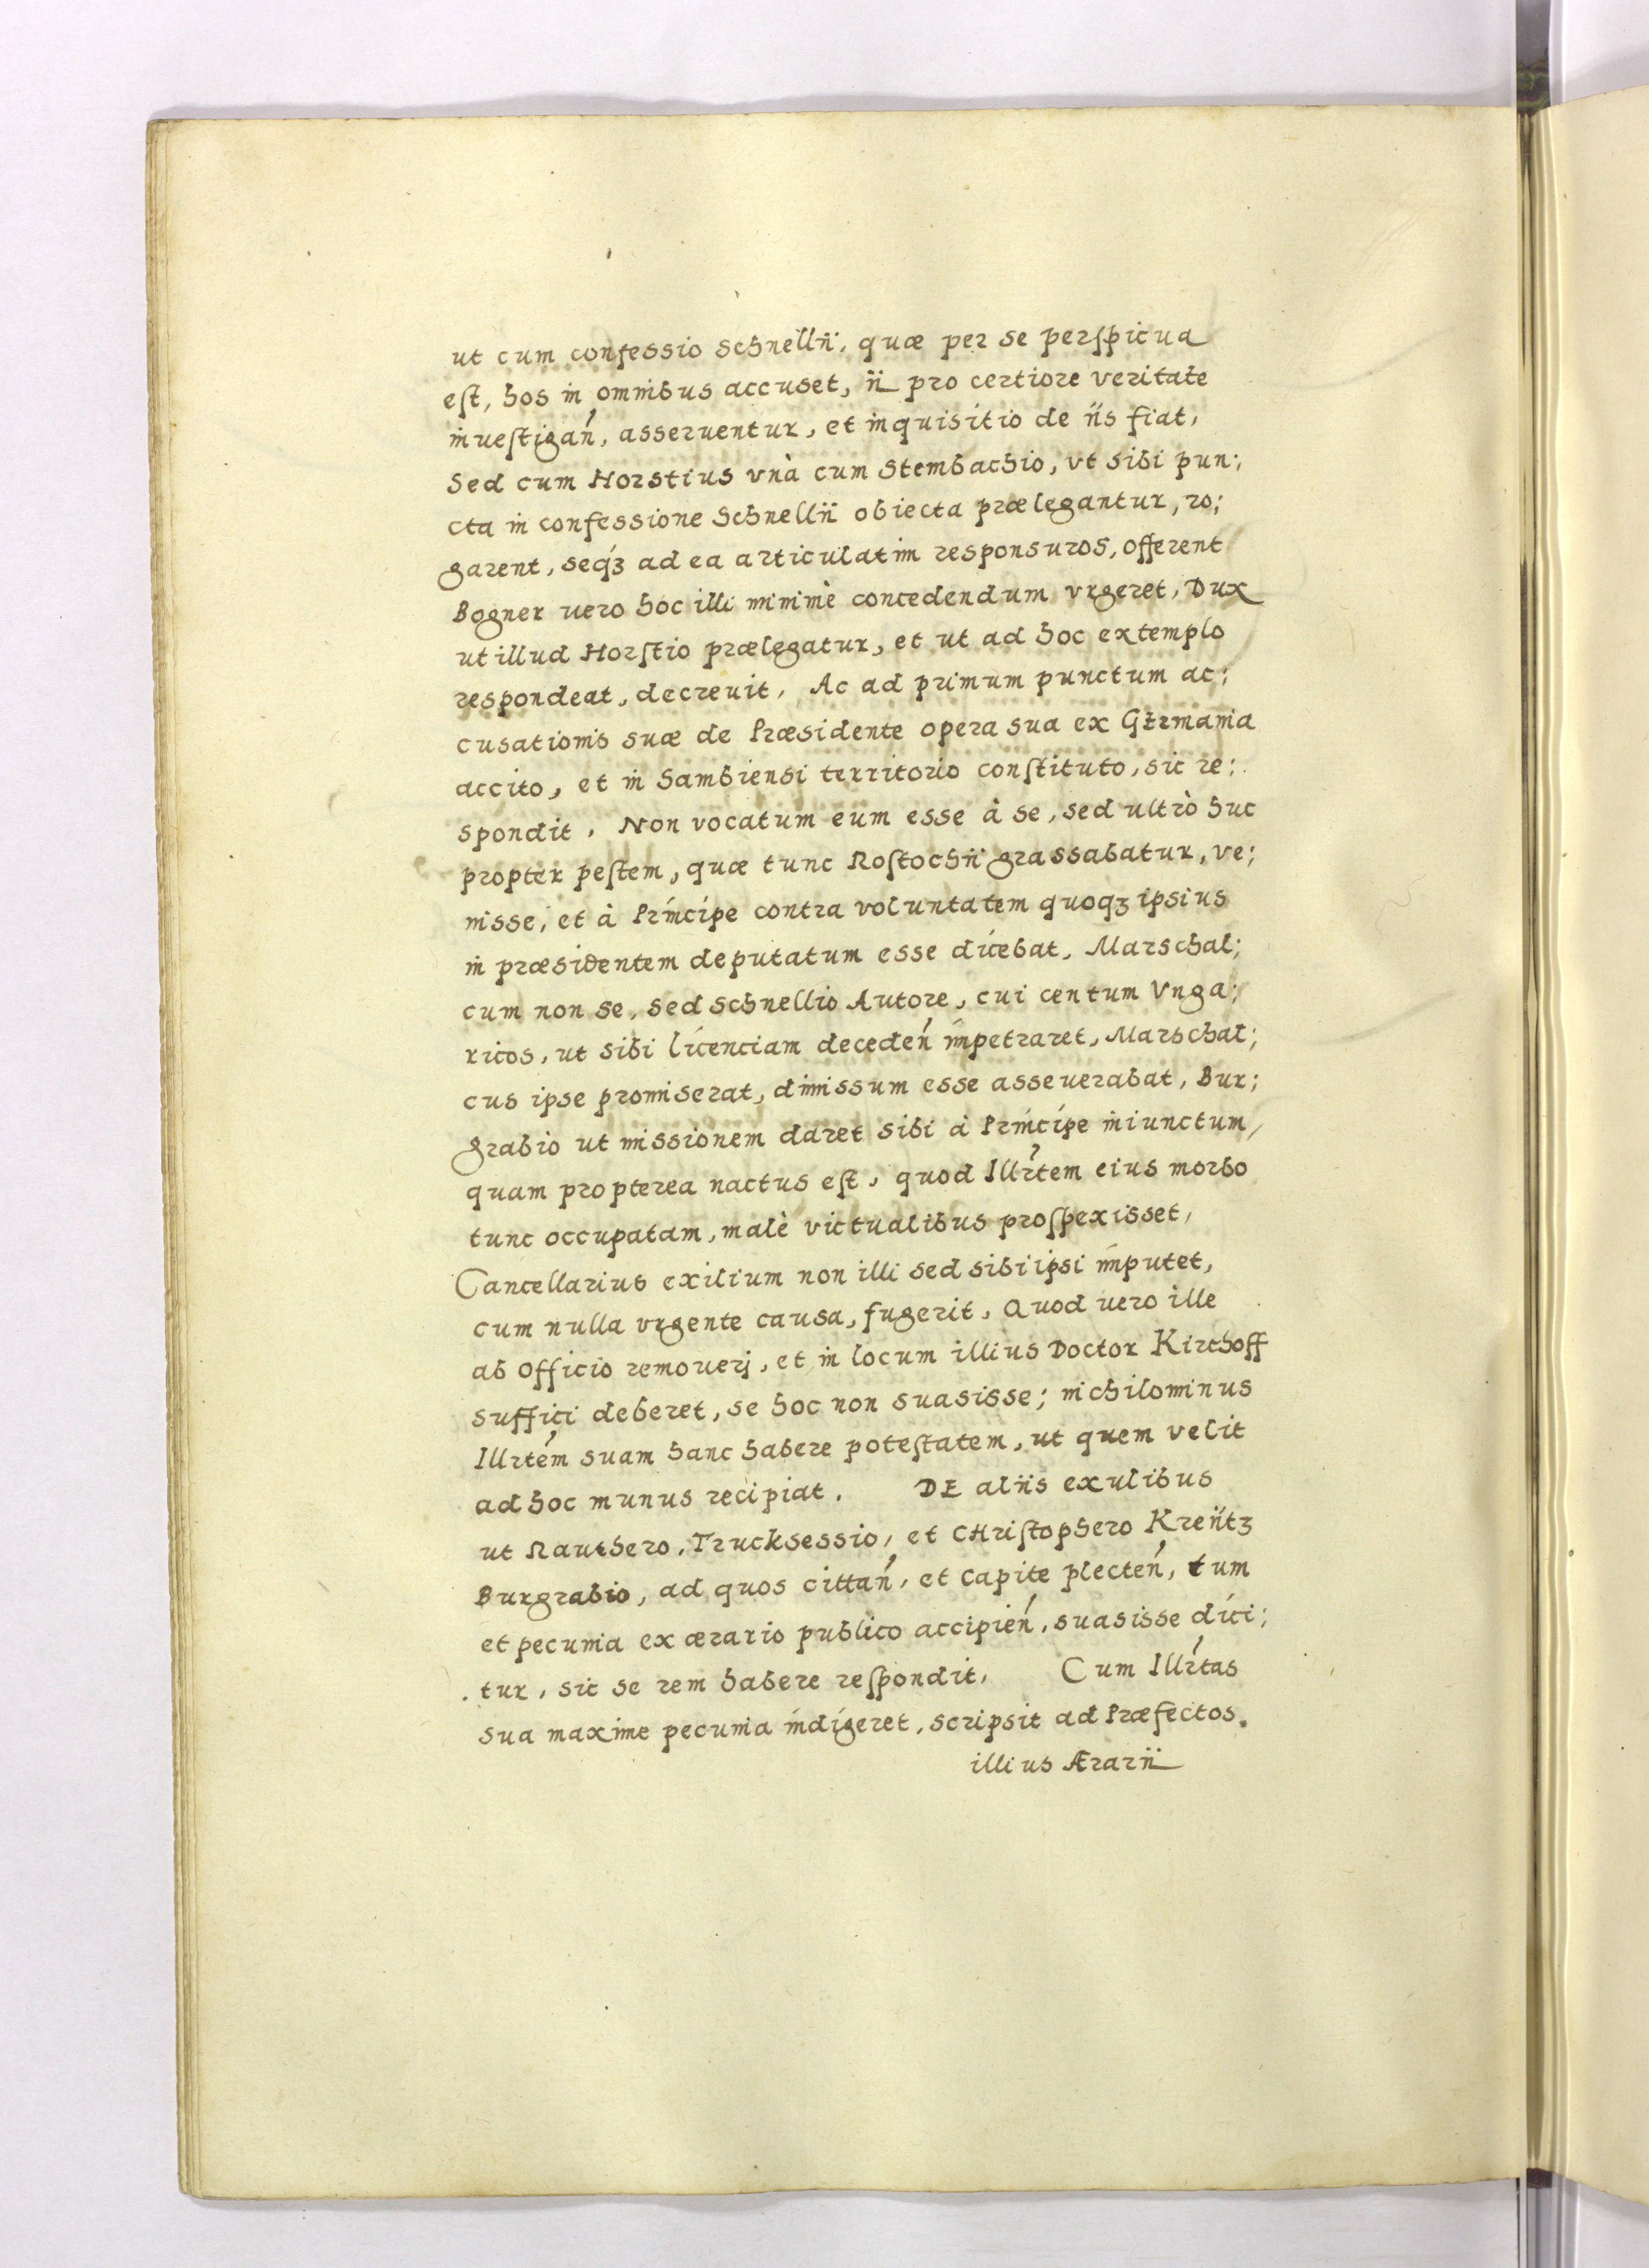 ut cum confessio Schnellii, quæ per se perspicua
est, hos in omnibus accuset, ii pro certiore veritate
inuestigan̄, asseruentur, et inquisitio de iis fiat,
Sed cum Horstius vnà cum Stembachio, vt sibi pun:
cta in confessione Schnellii obiecta prælegantur, ro:
garent, seqꝫ ad ea articulatim responsuros, offerent
Bogner uero hoc illi minimè concedendum vrgeret, Dux
ut illud Horstio prælegatur, et ut ad hoc extemplo
respondeat, decreuit, Ac ad primum punctum ac:
cusationis suæ de Præsidente opera sua ex Germania
accito, et in Sambiensi territorio constituto, sic re:
spondit, Non vocatum eum esse à se, sed ultrò huc
propter pestem, quæ tunc Rostochii grassabatur, ve:
nisse, et à Principe contra voluntatem quoqꝫ ipsius
in præsidentem deputatum esse dicebat, Marschal:
cum non se, sed Schnellio Autore, cui centum Vnga:
ricos, ut sibi licenciam deceden̄ impetraret, Marschal:
cus ipse promiserat, dimissum esse asseuerabat, Bur:
grabio ut missionem daret sibi à Principe iniunctum,
quam propterea nactus est, quod Illr̄tem eius morbo
tunc occupatam, malè victualibus prospexisset,
Cancellarius exilium non illi sed sibi ipsi imputet,
cum nulla vrgente causa, fugerit, Quod uero ille
ab Officio remouerj, et in locum illius Doctor Kirchoff
suffici deberet, se hoc non suasisse; nichilominus
Illrtem̄ suam hanc habere potestatem, ut quem velit
ad hoc munus recipiat. DE aliis exulibus
ut Rauthero, Trucksessio, et CHristophero Kreütz
Burgrabio, ad quos cittan̄, et capite plecten̄, tum
et pecunia ex ærario publico accipien̄, suasisse dici:
tur, sic se rem habere respondit, Cum Illr̄tas
sua maxime pecunia indigeret, scripsit ad Præfectos
illius Ærarii